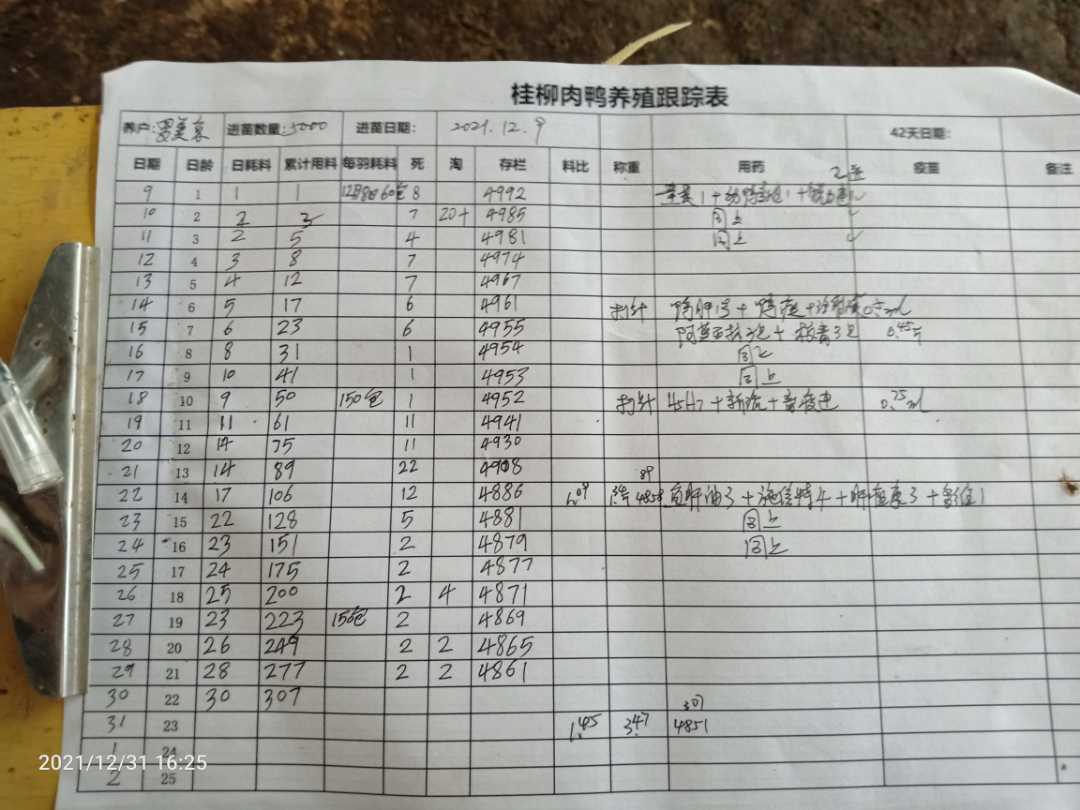 桂柳肉鸭养殖跟踪表
养户: 进苗数量: 5000 进苗日期: 2021.12.9 42天日期:
日期 日龄 日耗料 累计用料 每羽耗料 死 淘 存栏 料比 称重 用药 疫苗 备注
9 1 1 1 12月8日60包 8 4992
10 2 2 3 7 20+ 4985 同上
11 3 2 5 4 4981 同上
12 4 3 8 7 4974
13 5 4 12 7 4967
14 6 5 17 6 4961 打针
15 7 6 23 6 4955
16 8 8 31 1 4954 同上
17 9 10 41 1 4953 同上
18 10 9 50 150包 1 4952 打针 0.75ml
19 11 11 61 11 4941
20 12 14 75 11 4930
21 13 14 89 22 4908 89
22 14 17 106 12 4886 4858 鱼肝油3+
23 15 22 128 5 4881 同上
24 16 23 151 2 4879 同上
25 17 24 175 2 4877
26 18 25 200 2 4 4871
27 19 23 223 150包 2 4869
28 20 26 249 2 2 4865
29 21 28 277 2 2 4861
30 22 30 307 307
31 23 1.45 3.47 4851
1 24
2 25
2021/12/31 16:25